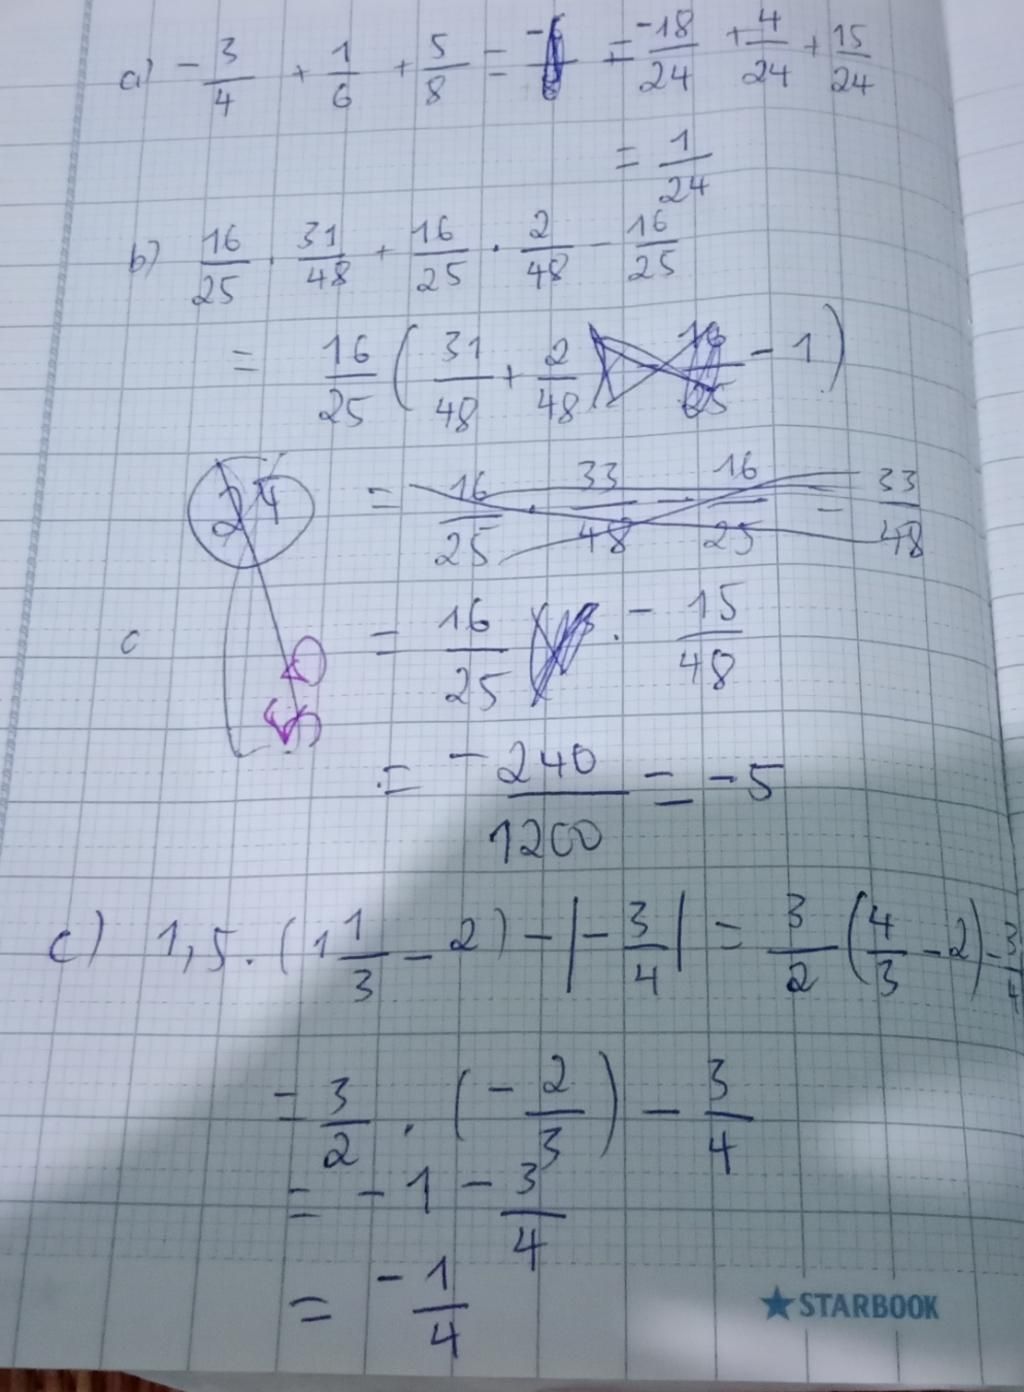 a) -3/4 + 1/6 + 5/8 = = -18/24 + 4/24 + 15/24
= 1/24
b) 16/25 · 31/48 + 16/25 · 2/48 - 16/25
= 16/25 (31/48 + 2/48 - 1)
24 = 16/25 · 33/48 - 16/25 = 33/48
c = 16/25 · - 15/48
= -240/1200 = -5
c) 1,5 · (1 1/3 - 2) - |-3/4| = 3/2 (4/3 - 2) - 3/4
= 3/2 · (-2/3) - 3/4
= -1 - 3/4
= -1/4
STARBOOK